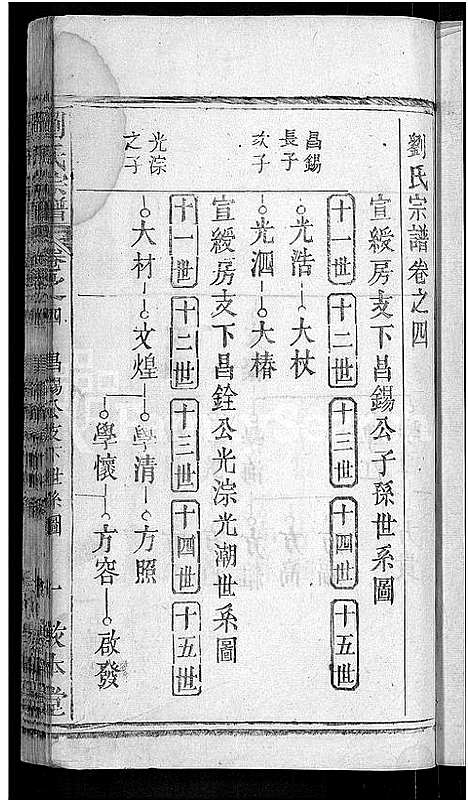 劉氏宗譜卷之四
宣綬房支下昌錫公子孫世系圖
十一世 十二世 十三世 十四世 十五世
昌錫長子 光浩 大杖
次子 光泗 大椿
宣綬房支下昌銓公光淙光潮世系圖
十一世 十二世 十三世 十四世 十五世
光淙之子 大材 文煌 學清 方照
學懷 方容 啟發
劉氏宗譜 卷之四 昌錫公支下世系圖 一 敦本堂